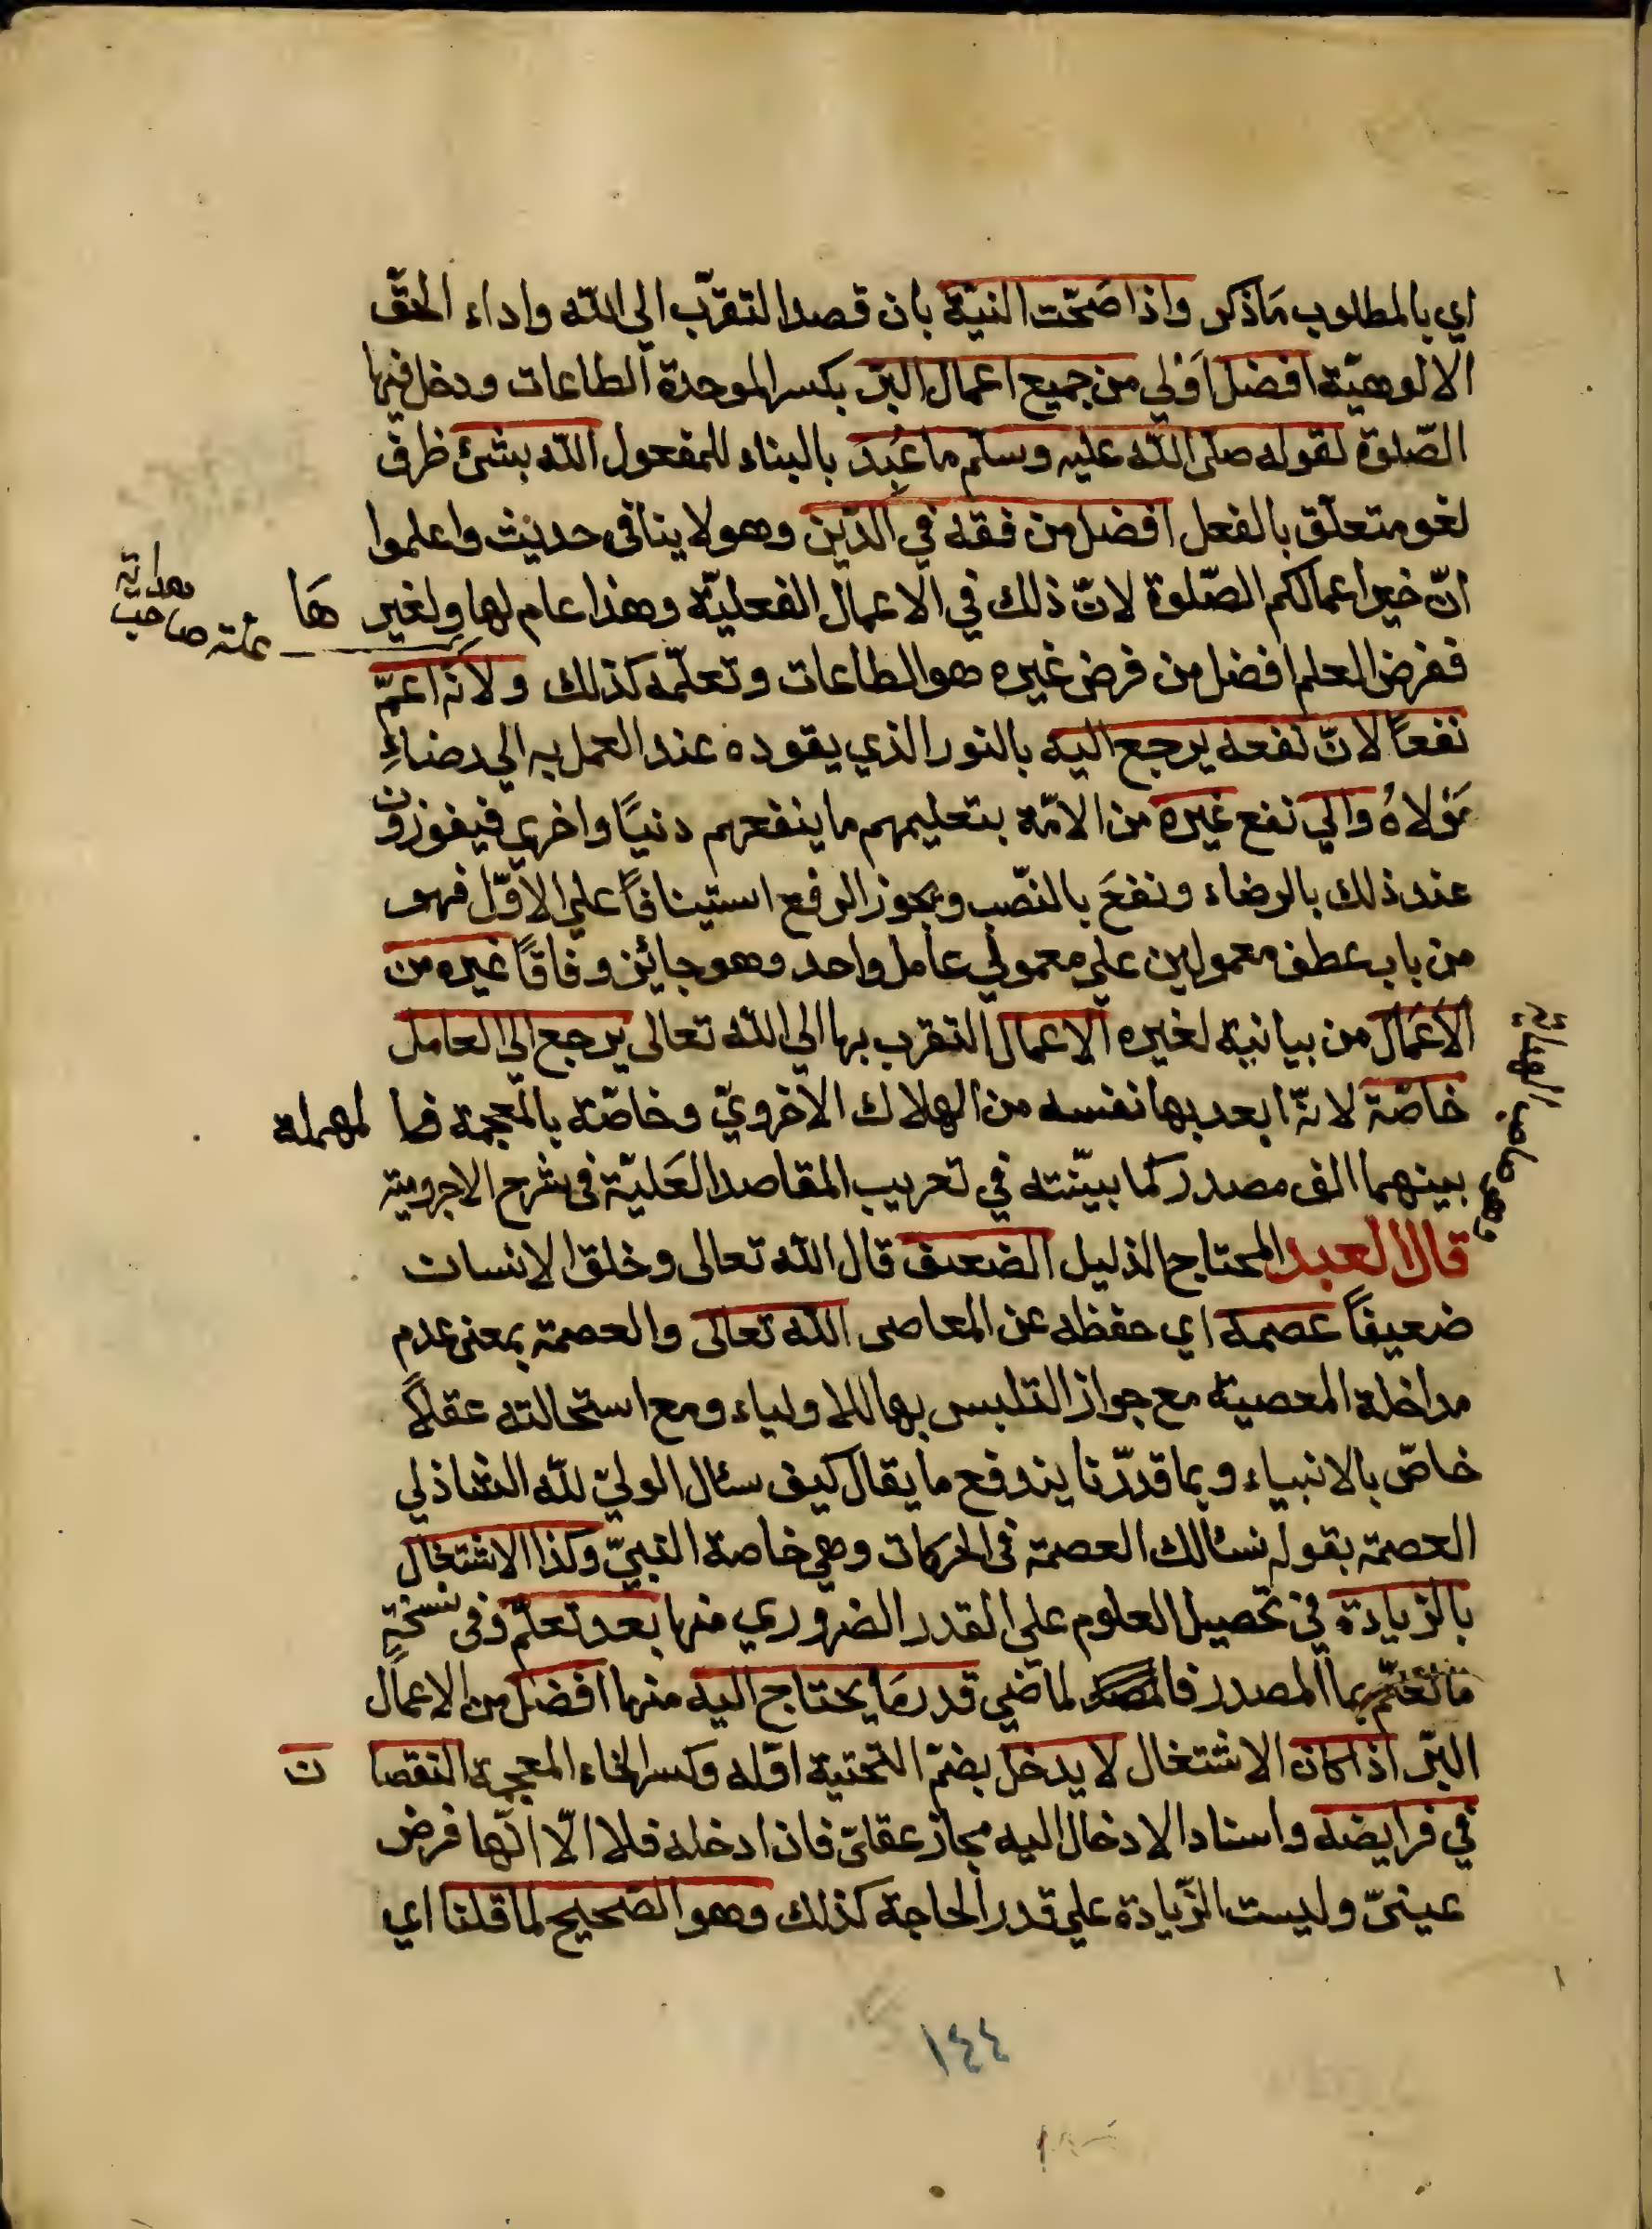 اي بالمطلوب مَا ذكر واذا صَحّت النيّة بان قصد التقرّب الي الله واداء الحقّ
الالوهيّة افضل اَوْلي من جميع اعمال البرّ بكسر الموحدة الطاعات ودخل فيها
الصّلوة لقوله صلى الله عليه وسلم ما عُبِدَ بالبناء للمفعول الله بشئ ظرف
لغو متعلّق بالفعل افضل من فقه في الدّين وهو لا ينافى حديث واعلموا
انّ خير اعمالكم الصّلوة لانّ ذلك في الاعمال الفعليّة وهذا عام لها ولغير هَا
ففرض العلم افضل من فرض غيره هو الطاعات وتعلّمه كذلك ولانّه اعمّ
نفعاً لانّ نفعه يرجع اليه بالنور الذي يقوده عند العمل به الي رضاءِ
مَوْلاهُ والي نفع غيره من الامّة بتعليمهم ما ينفعهم دنيًا واخري فيفوزون
عند ذلك بالرضاء ونفعَ بالنّصب ويجوز الرفع استينافاً علي الاوّل فهو
من باب عطف معمولين علي معمولي عامل واحد وهو جائز وفاقًا غيره من
الاَعْمَال من بيانية لغيره الاعمال التقرب بها الي الله تعالى يرجع الى العامل
خاصّة لانّه ابعد بها نفسه من الهلاك الاخرويّ وخاصّة بالمعجمة فا لمهملة
بينهما الف مصدر كما بيّنته في تعريب المقاصد العَليّة فى شرح الاجرومية
قال العبد المحتاج الذليل الضعيف قال الله تعالى وخلق الانسان
ضعيفاً عصمه اي حفظه عن المعاصى الله تعالى والعصمة بمعنى عدم
مداخلة المعصية مع جواز التلبس بها للاولياء ومع استحالته عقلاً
خاصّ بالانبياء وبما قدرّنا يندفع ما يقال كيف سئال الوليّ لله الشاذلي
العصمة بقوله نسئالك العصمة فى الحركات وهي خاصة النبيّ وكذا الاشتغال
بالزيادة في تحصيل العلوم علي القدر الضروري منها بعد تعلّم وفى نسخةٍ
ما تعلّم بما المصدر فالمصدر لماضي قدر مَا يحتاج اليه منها افضل من الاعمال
البرّ اذا كان الاشتغال لا يدخل بضمّ التحتية اوّله وكسر الخاء المعجمة النقصا ن
في فرايضه واسناد الادخال اليه مجاز عقليّ فان ادخله فلا الّا انّها فرض
عينىّ وليست الزّيادة علي قدر الحاجة كذلك وهو الصّحيح لما قلنا اي
١٤٤